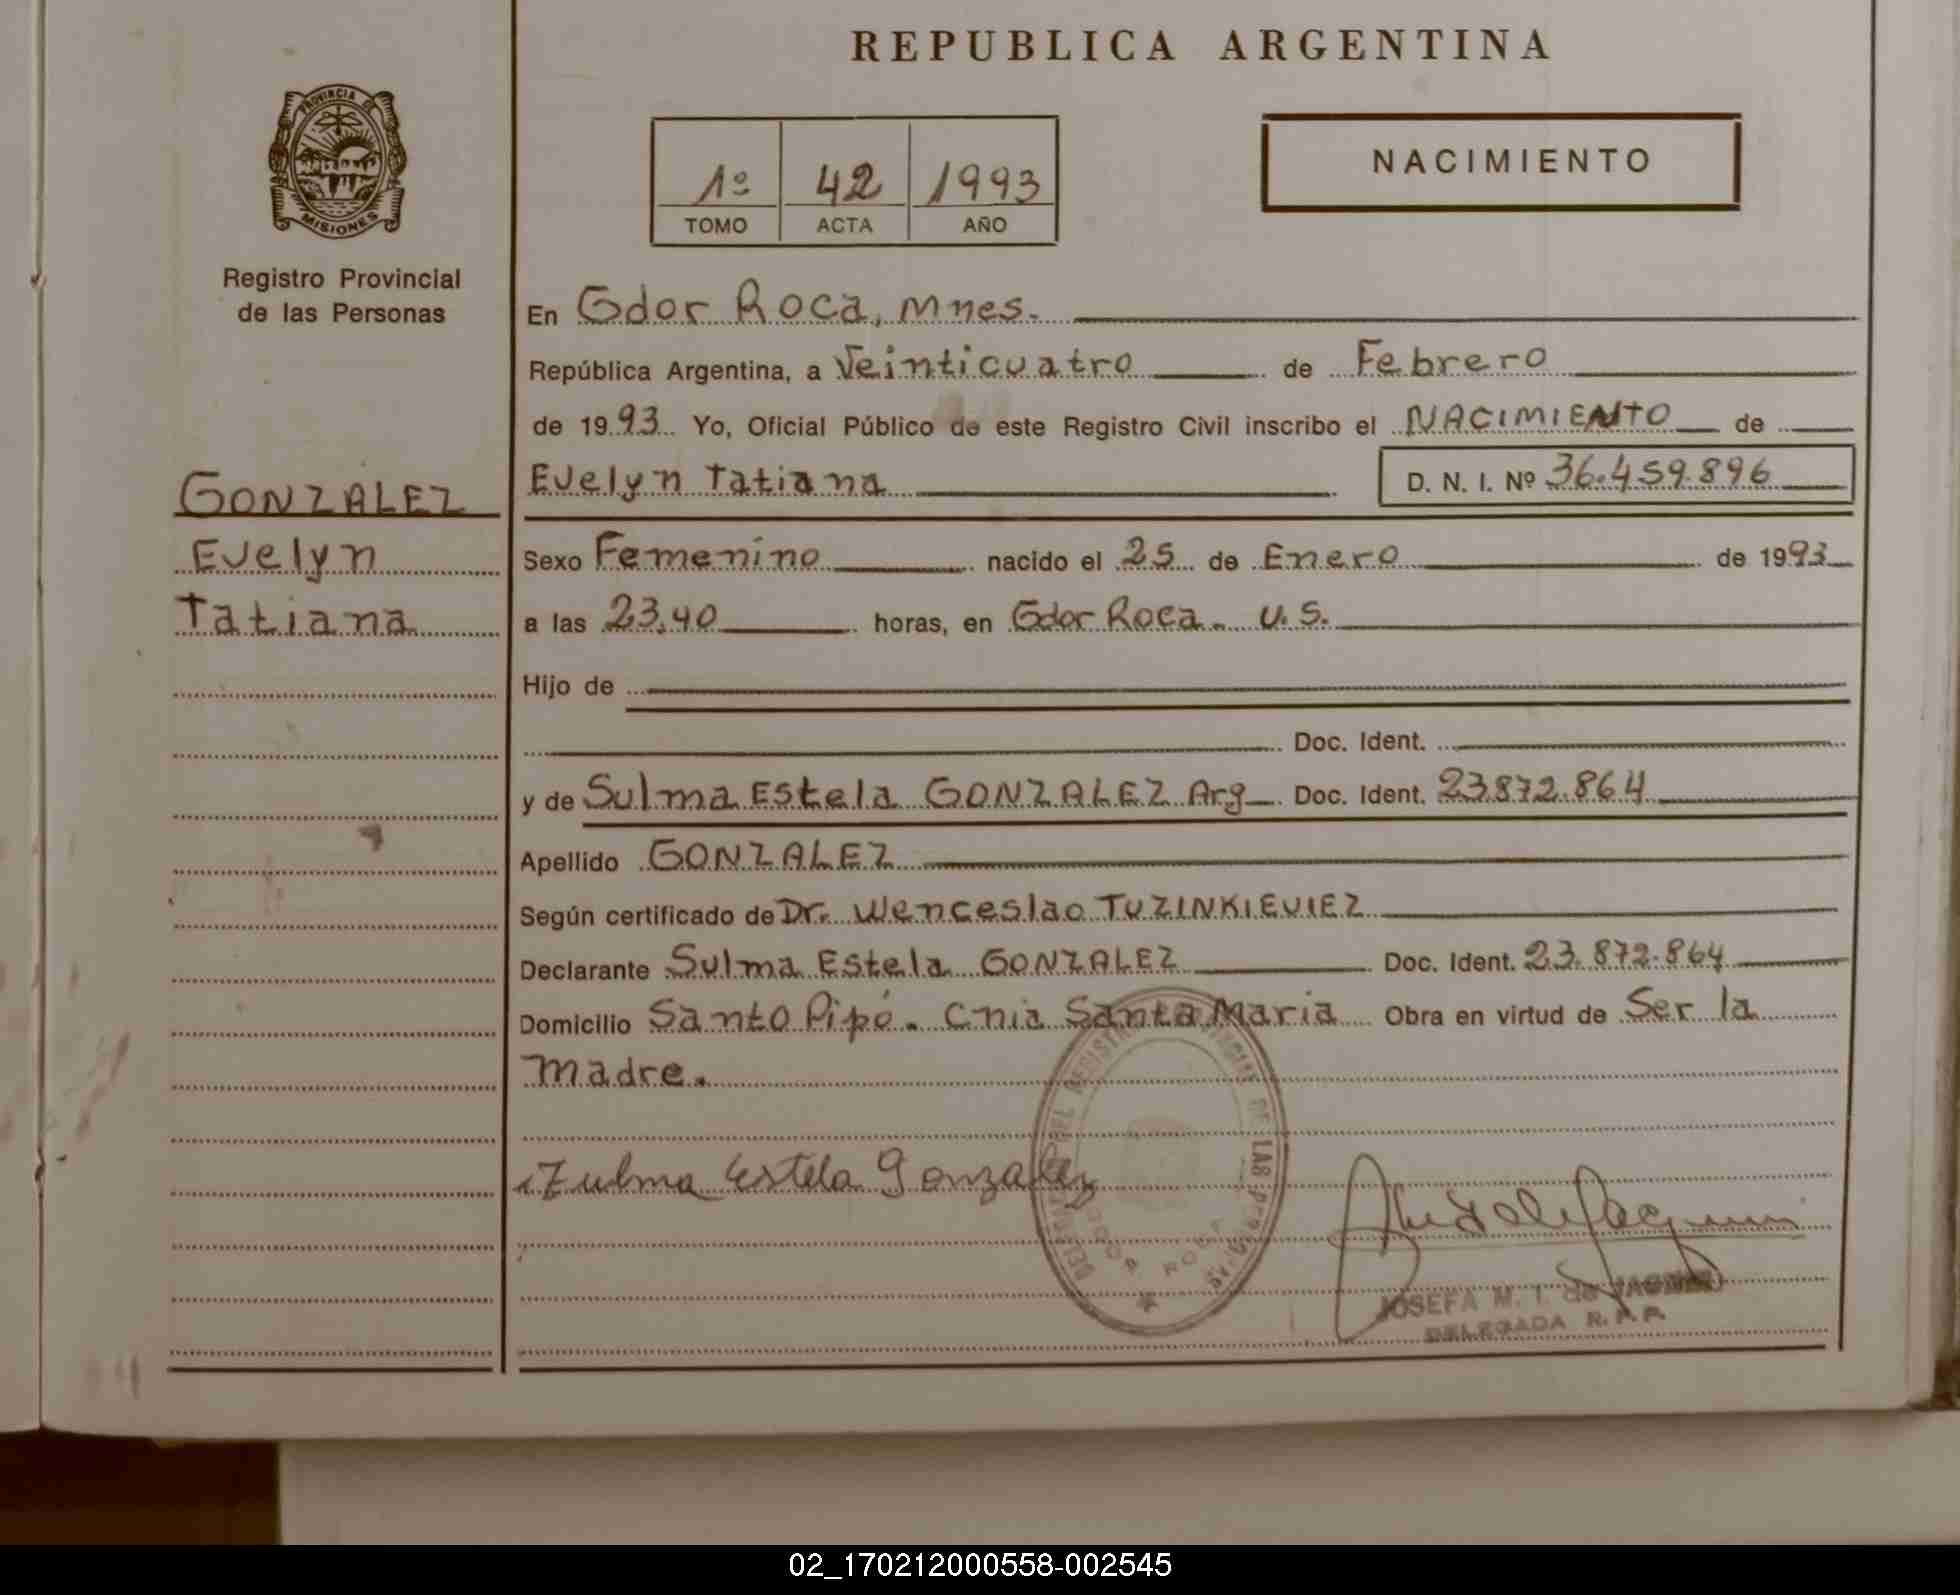 REPUBLICA ARGENTINA
PROVINCIA DE
MISIONES
Registro Provincial
de las Personas
1º 42 1993
TOMO ACTA AÑO
NACIMIENTO
En Gdor Roca, Mnes.
República Argentina, a Veinticuatro de Febrero
de 1993 Yo, Oficial Público de este Registro Civil inscribo el NACIMIENTO de
Evelyn Tatiana D. N. I. Nº 36.459.896
GONZALEZ
Evelyn
Tatiana
Sexo Femenino nacido el 25 de Enero de 1993
a las 23,40 horas, en Gdor Roca. U.S.
Hijo de
Doc. Ident.
y de Sulma Estela GONZALEZ Arg Doc. Ident. 23.872.864
Apellido GONZALEZ
Según certificado de Dr. Wenceslao TUZINKIEVIEZ
Declarante Sulma Estela GONZALEZ Doc. Ident. 23.872.864
Domicilio Santo Pipó. Cnia Santa Maria Obra en virtud de Ser la
Madre.
Zulma Estela Gonzalez
JOSEFA M. I. de
DELEGADA R. P. P.
02_170212000558-002545